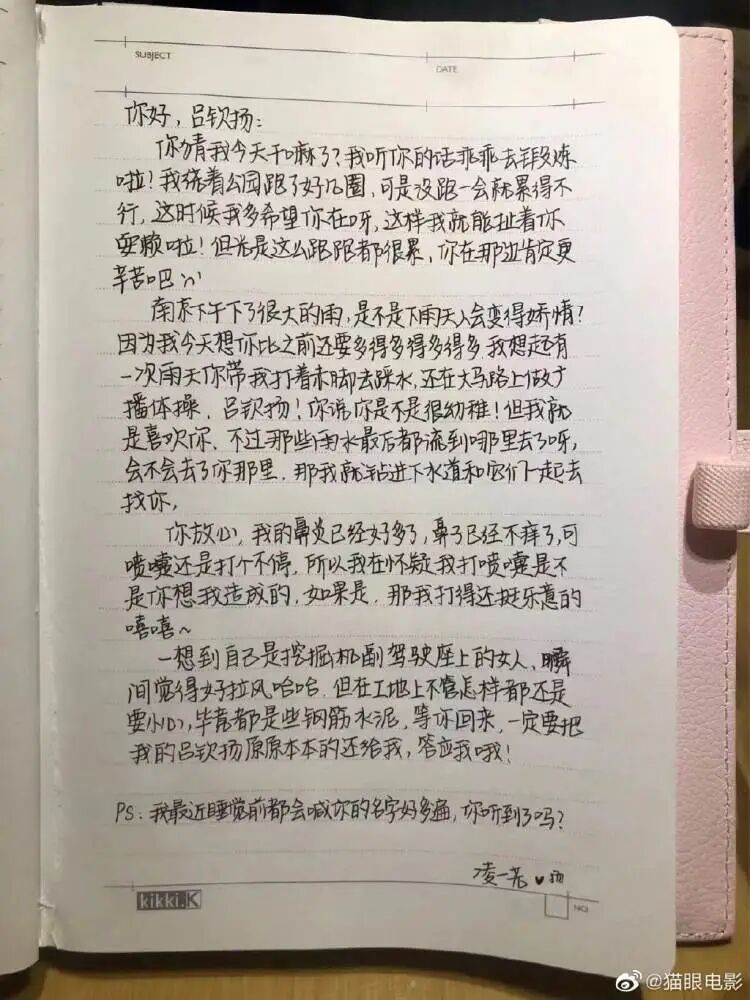 SUBJECT
DATE
你好，吕钦扬：
你猜我今天干嘛了？我听你的话乖乖去锻炼
啦！我绕着公园跑了好几圈，可是没跑一会就累得不
行，这时候我多希望你在呀，这样我就能扯着你
耍赖啦！但光是这么跑跑都很累，你在那边肯定更
辛苦吧
南京下午下了很大的雨，是不是下雨天人会变得矫情？
因为我今天想你比之前还要多得多得多得多 我想起有
一次雨天你带我打着赤脚去踩水，还在大马路上做广
播体操，吕钦扬！你说你是不是很幼稚！但我就
是喜欢你、不过那些雨水最后都流到哪里去了呀，
会不会去了你那里，那我就钻进下水道和它们一起去
找你，
你放心，我的鼻炎已经好多了，鼻子已经不痒了，可
喷嚏还是打个不停，所以我在怀疑我打喷嚏是不
是你想我造成的，如果是，那我打得还挺乐意的
嘻嘻~
一想到自己是挖掘机副驾驶座上的女人，瞬
间觉得好拉风哈哈，但在工地上不管怎样都还是
要小心，毕竟都是些钢筋水泥，等你回来，一定要把
我的吕钦扬原原本本的还给我，答应我哦！
PS：我最近睡觉前都会喊你的名字好多遍，你听到了吗？
凌一尧 ♥
kikki.K
NO.
@猫眼电影